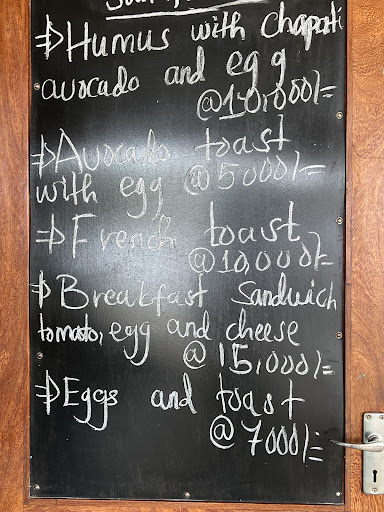 ⇒Humus with chapati
avocado and egg
⇒Avocado toast
with egg @5000/=
⇒French toast
@10,000/=
⇒Breakfast Sandwich
tomato, egg and cheese
@ 15,000/=
⇒Eggs and toast
@ 7000/=